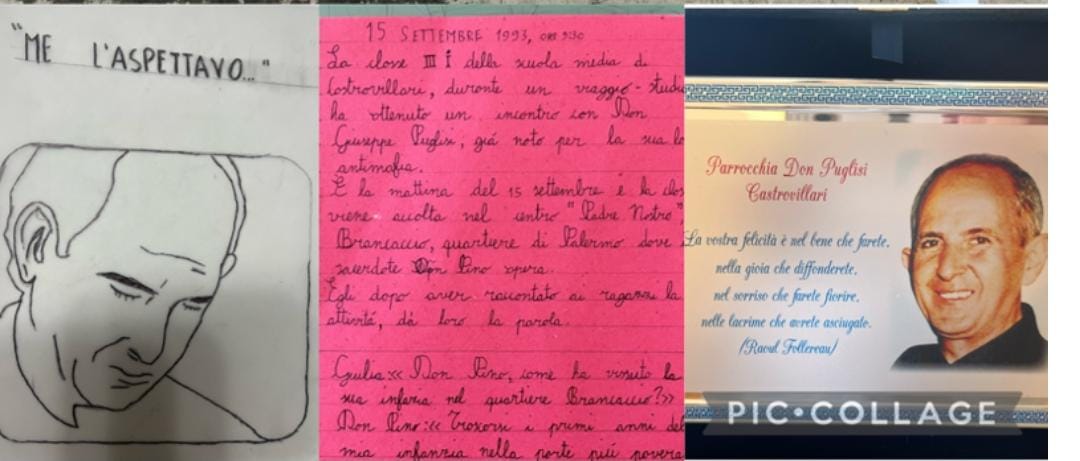 "ME L'ASPETTAVO..."
15 SETTEMBRE 1993, ORE 9:30
La classe III I della scuola media di
Castrovillari, durante un viaggio-studio
ha ottenuto un incontro con Don
Giuseppe Puglisi, già noto per la sua lo
antimafia.
È la mattina del 15 settembre e la clas
viene accolta nel centro "Padre Nostro",
Brancaccio, quartiere di Palermo dove il
sacerdote Don Pino opera.
Egli dopo aver raccontato ai ragazzi la
attività, dà loro la parola.
Giulia:<< Don Pino, come ha vissuto la
sua infanzia nel quartiere Brancaccio?>>
Don Pino:<< Trascorsi i primi anni del
mia infanzia nella parte più povera
Parrocchia Don Puglisi
Castrovillari
La vostra felicità è nel bene che farete,
nella gioia che diffonderete,
nel sorriso che farete fiorire,
nelle lacrime che avrete asciugate.
(Raoul Follereau)
PIC•COLLAGE